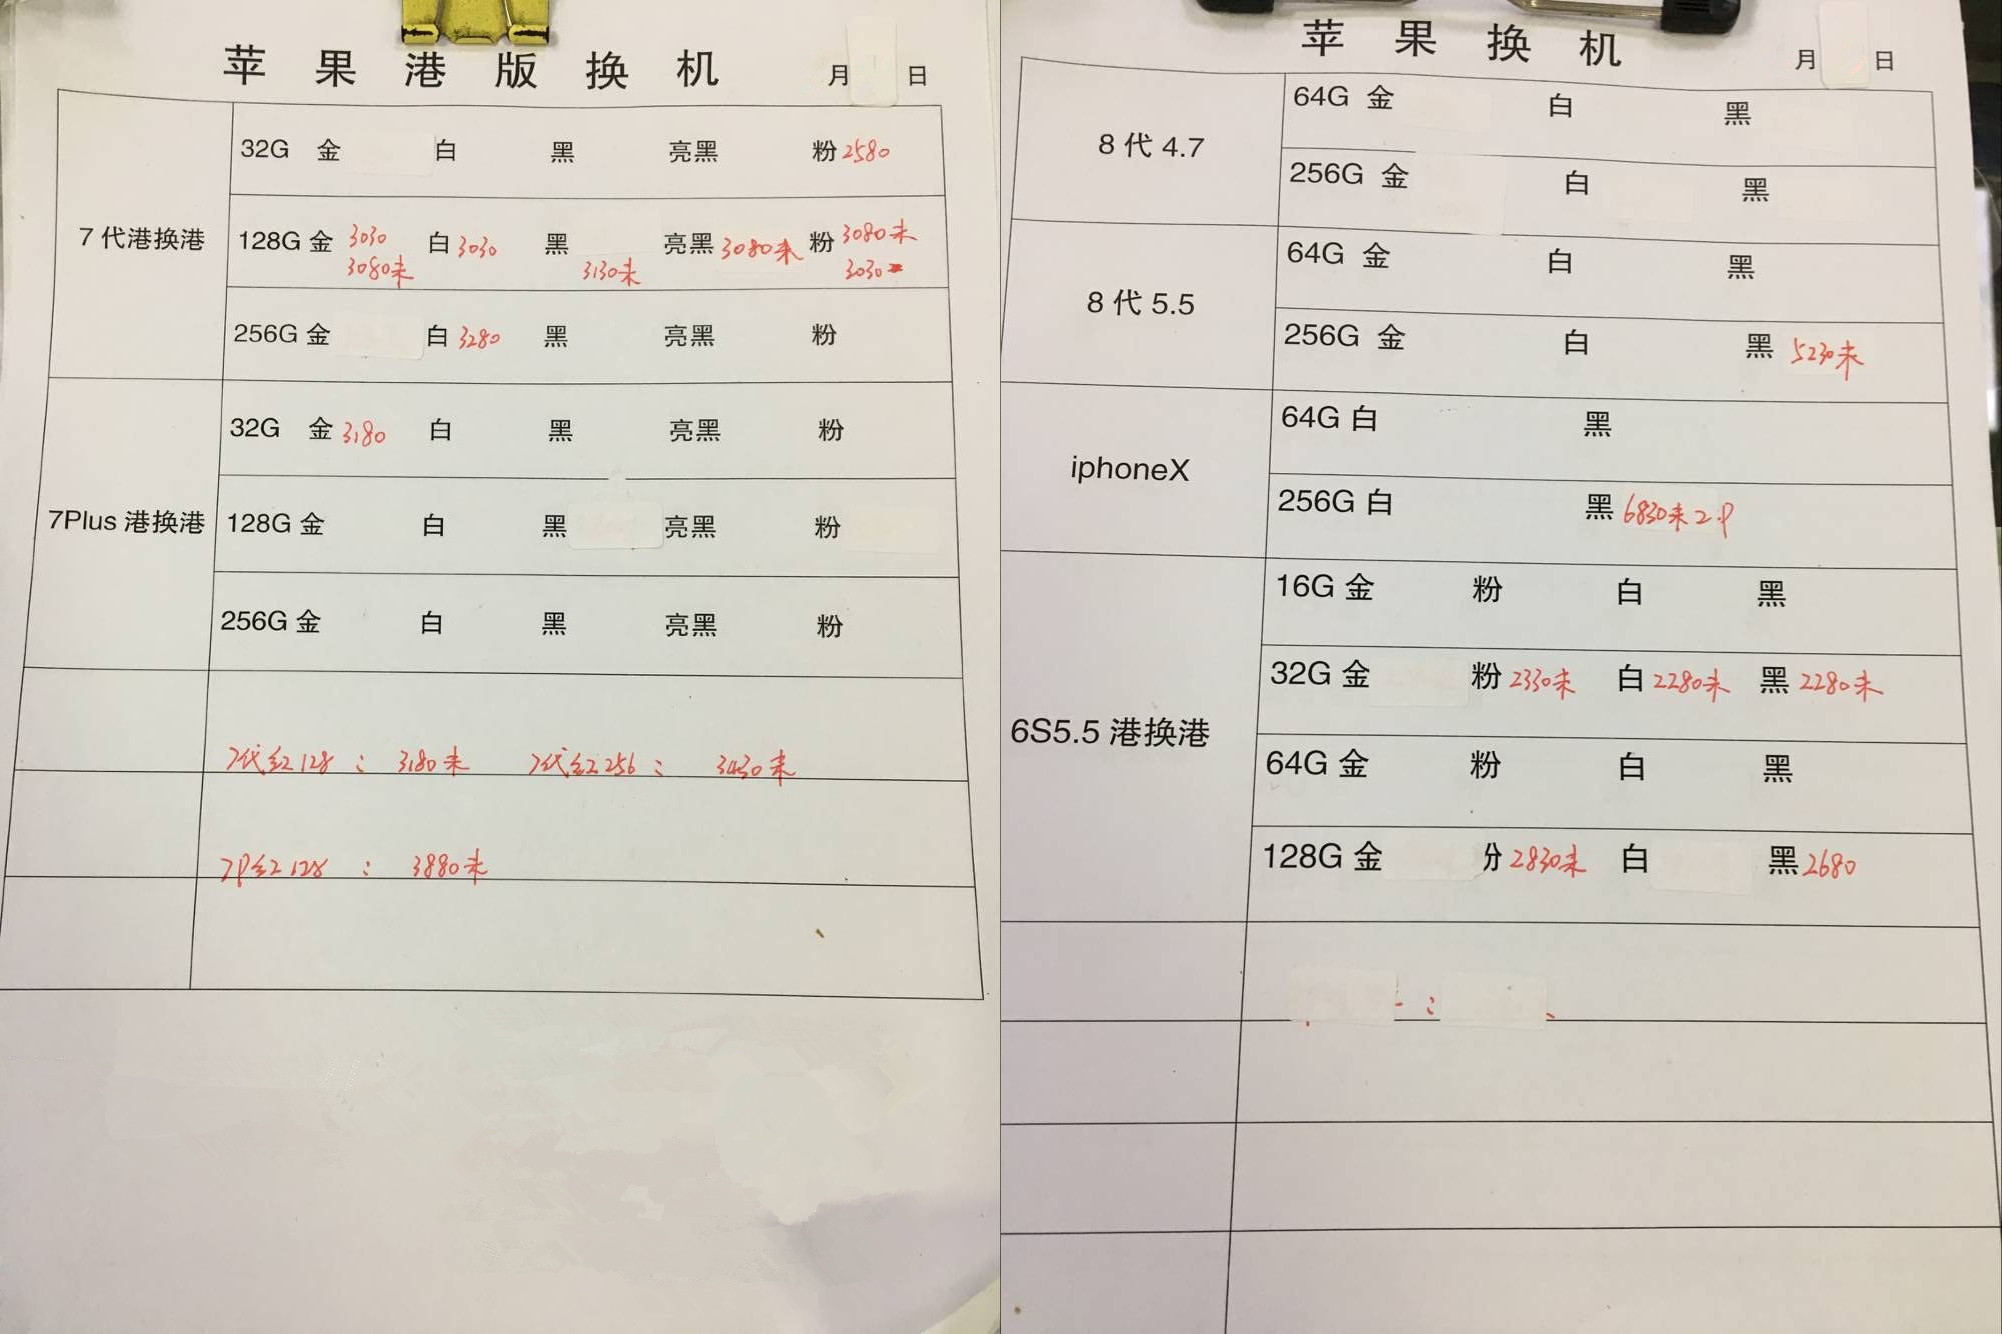 苹果港版换机 月 日
7代港换港
32G 金 白 黑 亮黑 粉2580
128G 金 3030 白3030 黑 亮黑3080未 粉3080未
3080未 3130未 3030
256G 金 白3280 黑 亮黑 粉
7Plus港换港
32G 金3180 白 黑 亮黑 粉
128G 金 白 黑 亮黑 粉
256G 金 白 黑 亮黑 粉
7代红128： 3180未 7代红256： 3430未
7P红128： 3880未
苹果换机 月 日
8代4.7
64G 金 白 黑
256G 金 白 黑
8代5.5
64G 金 白 黑
256G 金 白 黑 5230未
iphoneX
64G 白 黑
256G 白 黑6830未2.P
6S5.5港换港
16G 金 粉 白 黑
32G 金 粉2330未 白2280未 黑2280未
64G 金 粉 白 黑
128G 金 分2830未 白 黑2680
：